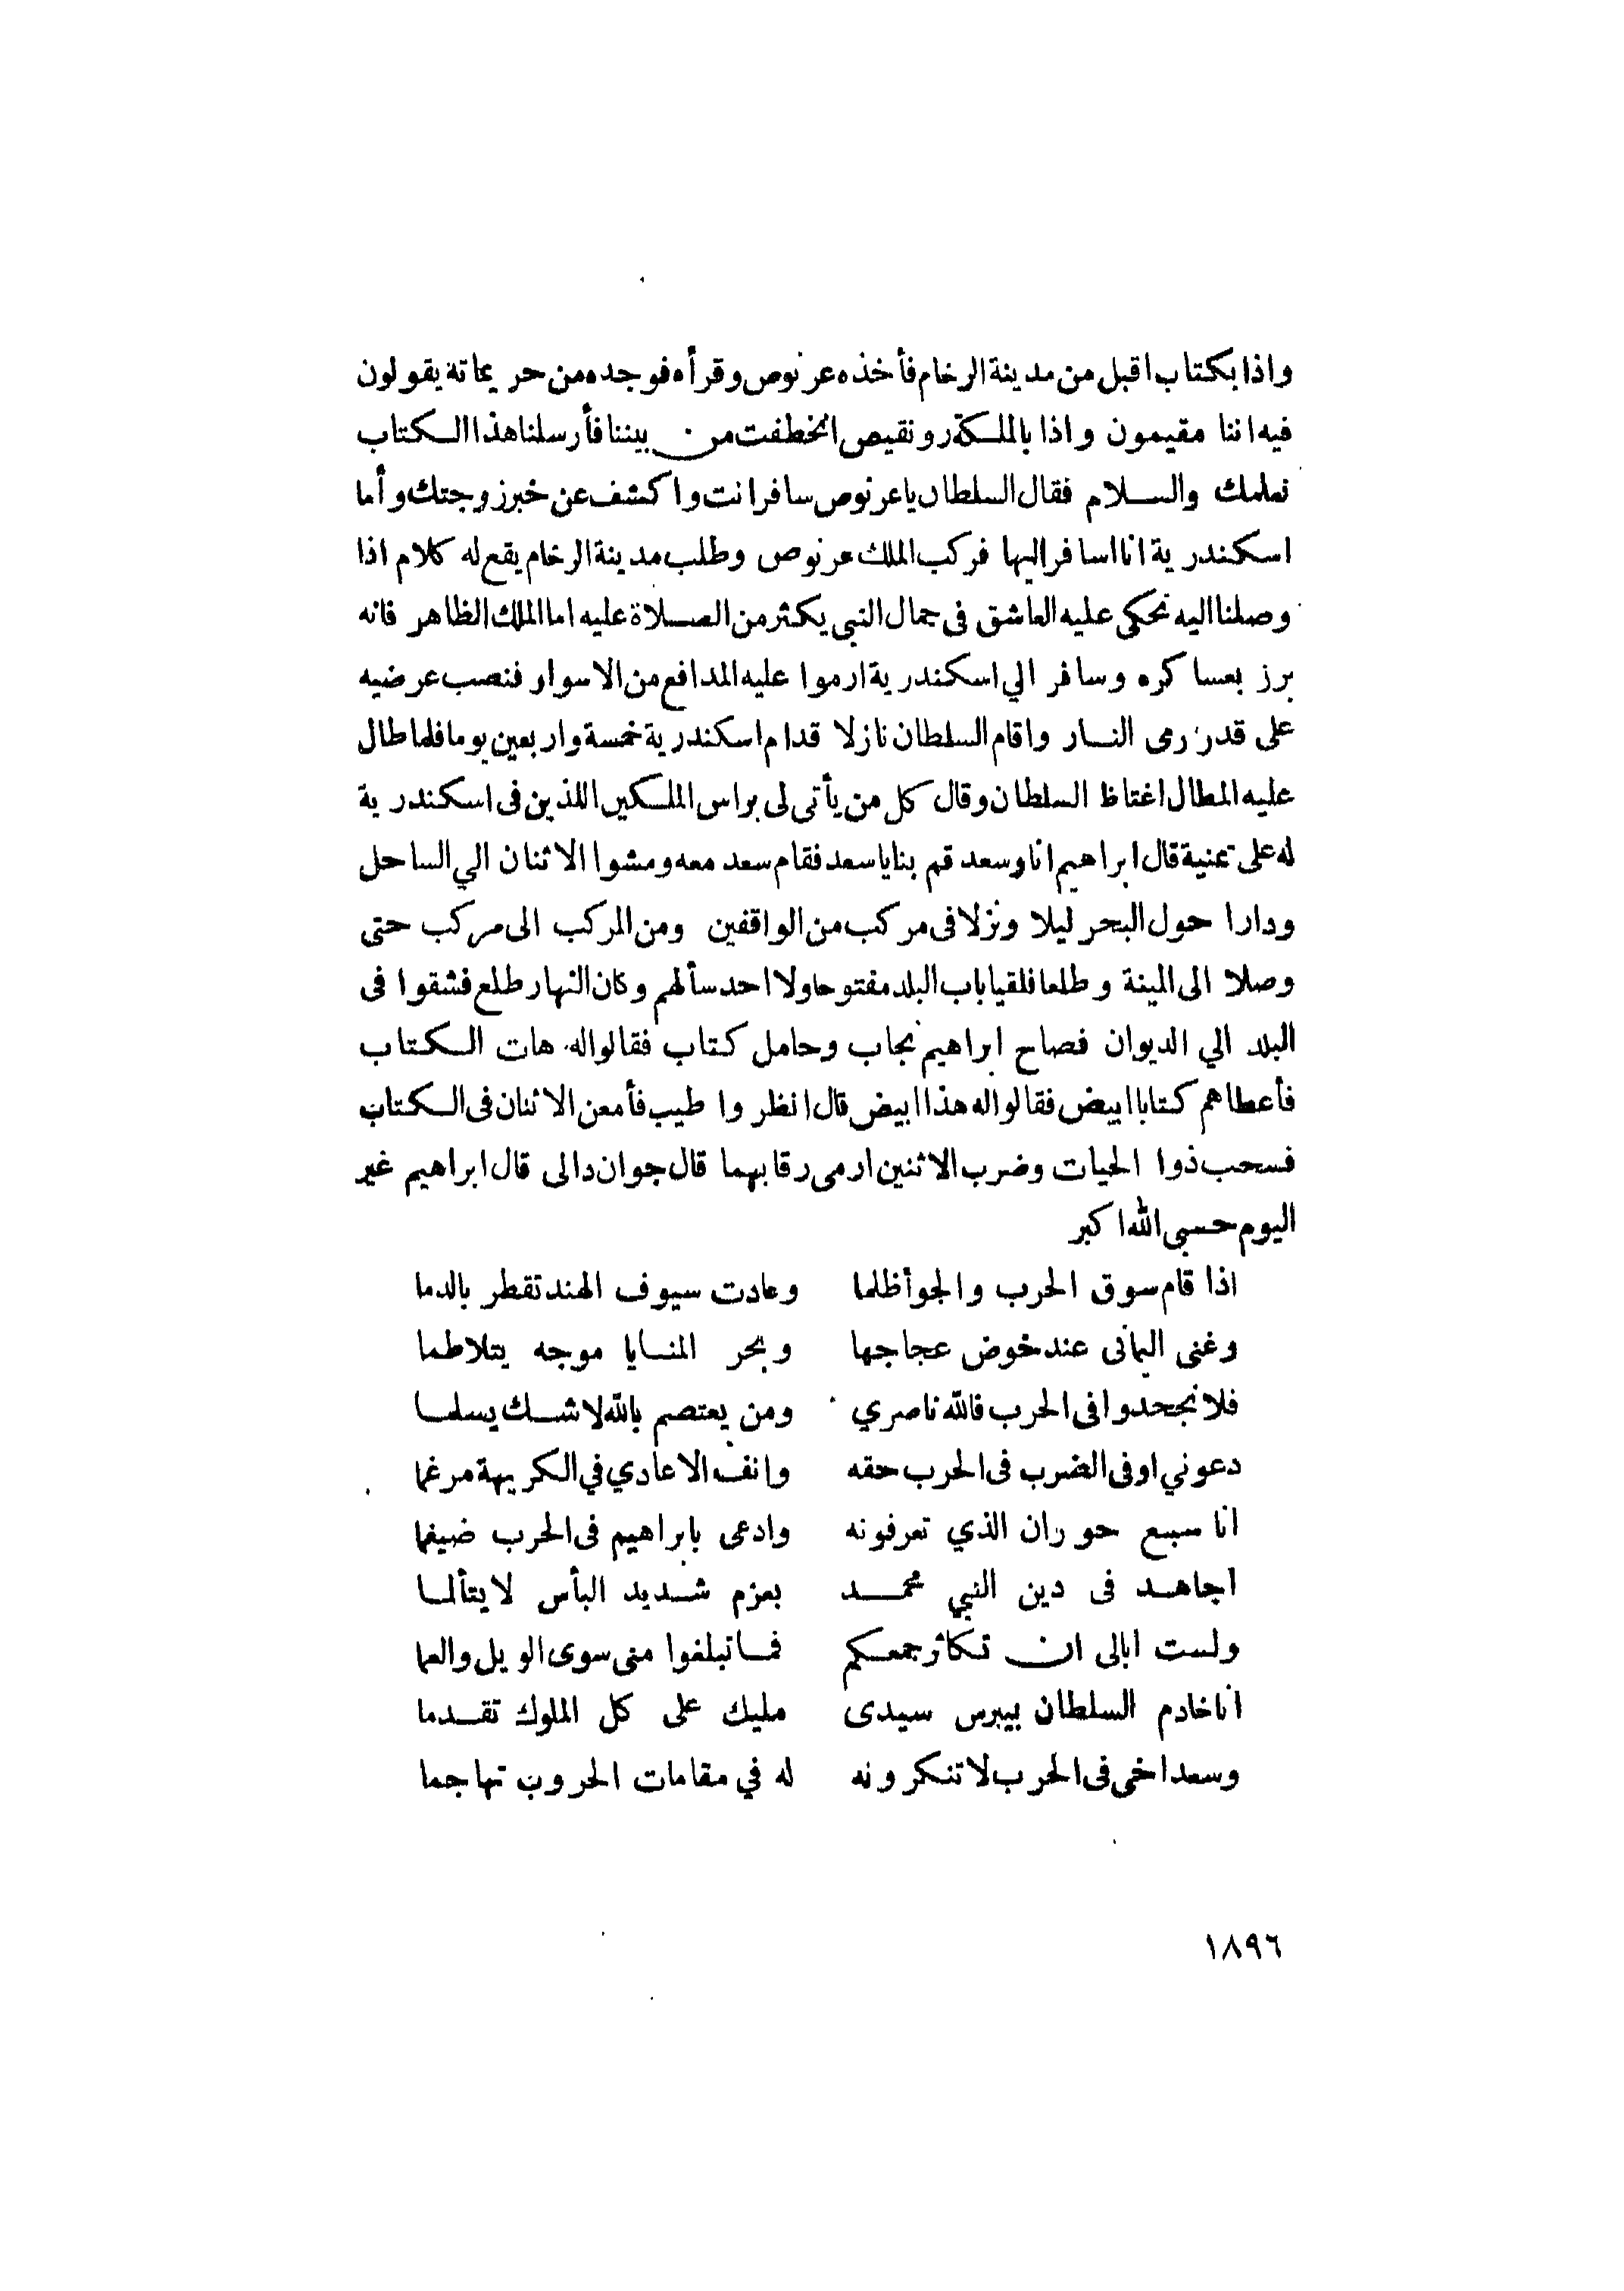 واذا بكتاب اقبل من مدينة الرخام فأخذه عرنوص وقرأه فوجده من حريماته يقولون
فيه اننا مقيمون واذا بالملكة رونقيص انخطفت من بيننا فأرسلنا هذا الكتاب
نعلمك والسلام فقال السلطان يا عرنوص سافر انت واكشف عن خبر زوجتك وأما
اسكندرية انا اسافر اليها فركب الملك عرنوص وطلب مدينة الرخام يقع له كلام اذا
وصلنا اليه نحكى عليه العاشق فى جمال النبي يكثر من الصلاة عليه اما الملك الظاهر فانه
برز بعساكره وسافر الي اسكندرية ارموا عليه المدافع من الاسوار فنصب عرضيه
على قدر رمى النار واقام السلطان نازلا قدام اسكندرية خمسة واربعين يوما فلما طال
عليه المطال اغتاظ السلطان وقال كل من يأتى لى براس الملكين اللذين فى اسكندرية
له على تمنية قال ابراهيم انا وسعد قم بنا يا سعد فقام سعد معه ومشوا الاثنان الي الساحل
ودارا حول البحر ليلا ونزلا فى مركب من الواقفين ومن المركب الى مركب حتى
وصلا الى المينة وطلعا فلقيا باب البلد مفتوحا ولا احد سألهم وكان النهار طلع فشقوا فى
البلد الي الديوان فصاح ابراهيم نجاب وحامل كتاب فقالوا له هات الكتاب
فأعطاهم كتابا ابيض فقالوا له هذا ابيض قال انظروا طيب فأمعن الاثنان فى الكتاب
فسحب ذوا الحيات وضرب الاثنين ارمى رقابهما قال جوان دالى قال ابراهيم غير
اليوم حسبى الله اكبر
اذا قام سوق الحرب والجو أظلما وعادت سيوف الهند تقطر بالدما
وغنى اليمانى عند خوض عجاجها وبحر المنايا موجه يتلاطما
فلا تجحدوا فى الحرب فالله ناصري ومن يعتصم بالله لا شك يسلما
دعوني اوفى الضرب فى الحرب حقه وانف الاعادي في الكريهة مرغما
انا سبع حوران الذي تعرفونه وادعى بابراهيم فى الحرب ضيغما
اجاهد فى دين النبي محمد بعزم شديد البأس لا يتألما
ولست ابالى ان تكاثر جمعكم فما تبلغوا منى سوى الويل والعما
انا خادم السلطان بيبرس سيدى مليك على كل الملوك تقدما
وسعد اخى فى الحرب لا تنكرونه له في مقامات الحروب تهاجما
١٨٩٦